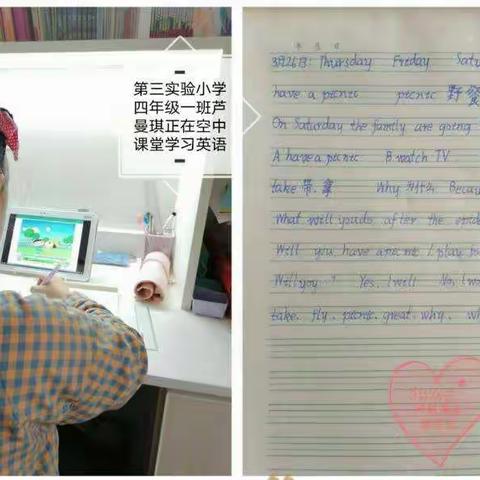 第三实验小学
四年级一班芦
曼琪正在空中
课堂学习英语
年 月 日
3月26日: Thursday Freday Satu
have a picnic picnic 野餐
On Saturday the family are going
A have a picnic B. watch TV
take 带、拿 Why 为什么 Becau
What will you do after the
Well you have a picnic I play fo
Yes, I will No, I w
take. fly. picnic. great. why. wh